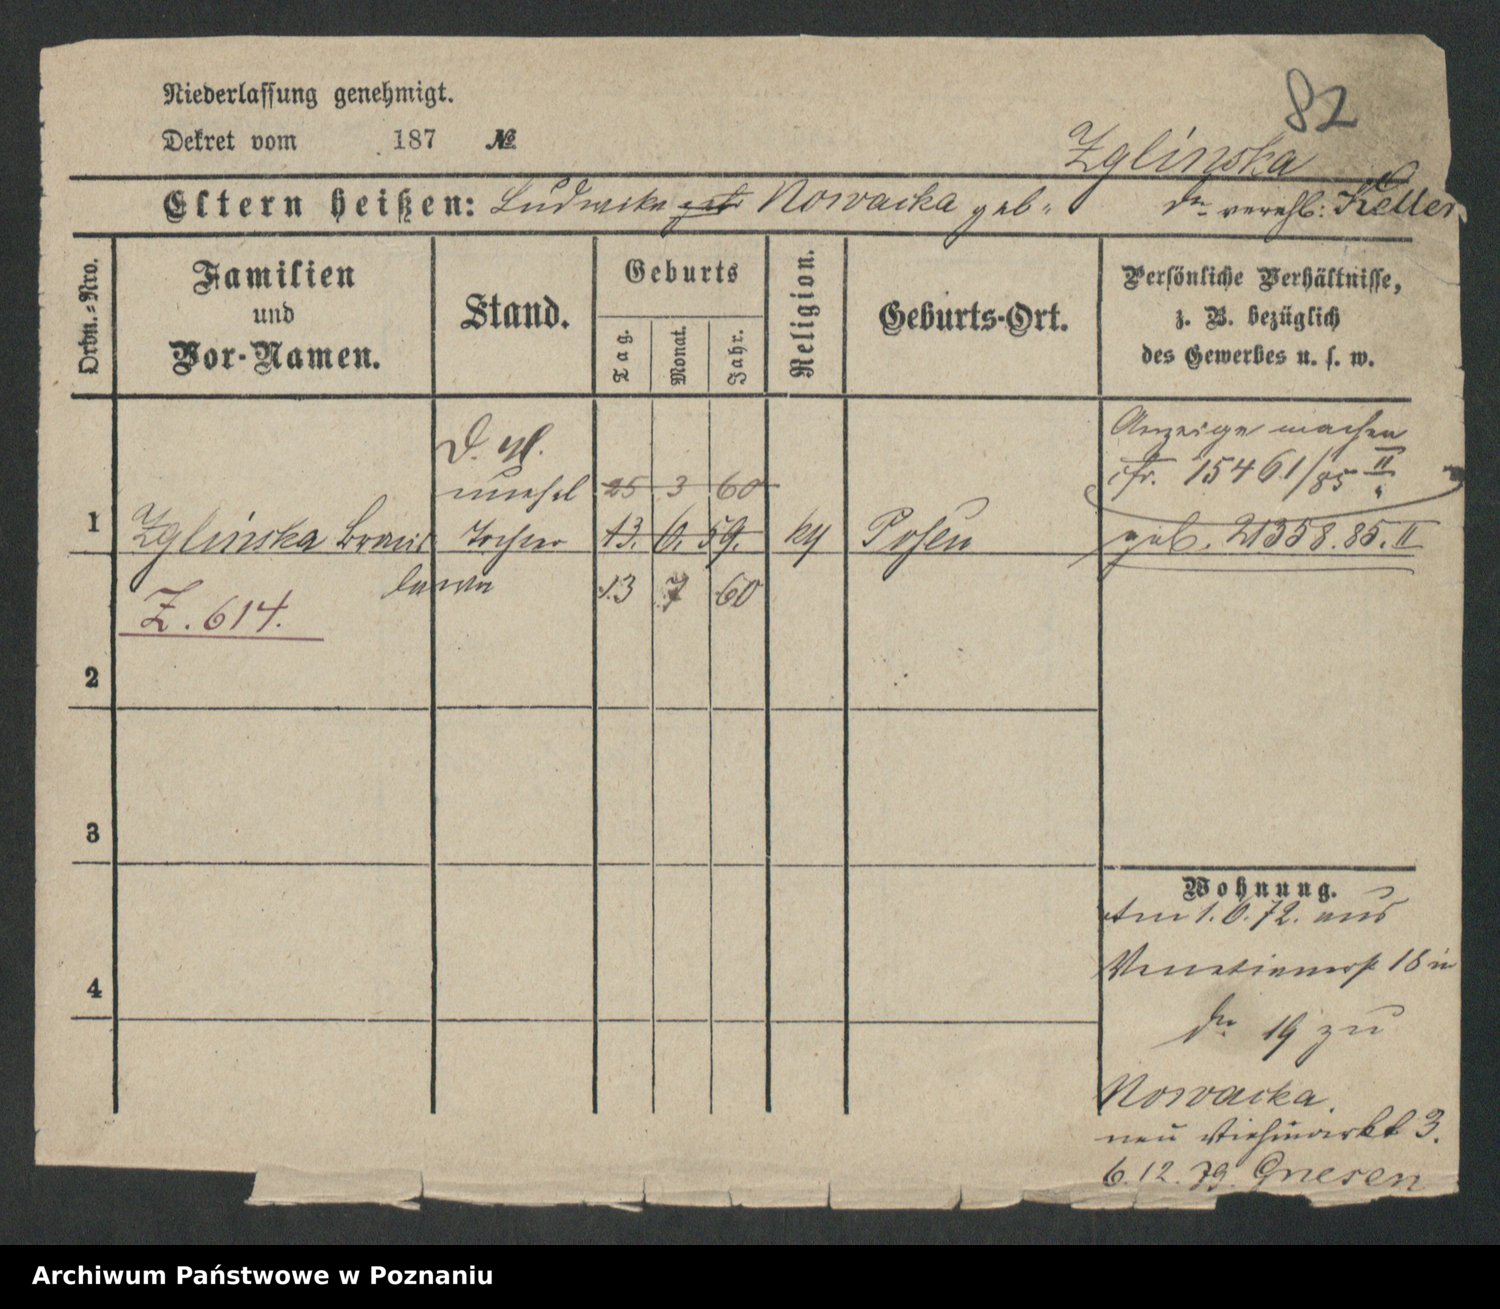 82
Niederlassung genehmigt.
Dekret vom 187 №
Zglinska
Eltern heißen: Ludwika geb Nowacka geb. verehl: Keller
Ordn.-Nro.
Familien
und
Vor-Namen.
Stand.
Geburts
Tag.
Monat.
Jahr.
Religion.
Geburts-Ort.
Persönliche Verhältnisse,
z. B. bezüglich
des Gewerbes u. s. w.
Anzeige machen
cfr. 15461/85 II
unehel 25 3 60
1 Zglinska Bronis Tochter 13. 6. 59. ky Posen
geb. 21358.85. II
lawa 13 7 60
Z. 614.
2
3
4
Wohnung.
Am 1.6.72. aus
Venetianerst 18 in
19 zu
Nowacka.
neu Viehmarkt 3.
6.12.79. Gnesen
Archiwum Państwowe w Poznaniu